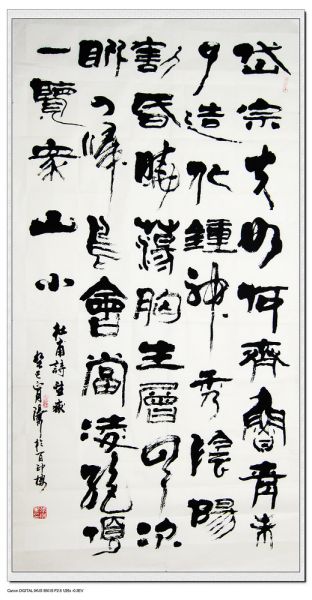 岱宗夫如何齊魯青未
了造化鍾神秀陰陽
割昏曉蕩胸生層云決
眦入歸鳥會當凌絕頂
一覽衆山小
杜甫詩望嶽
癸巳 月 於百印樓
Canon DIGITAL IXUS 950 IS F2.8 1/25s -0.3EV